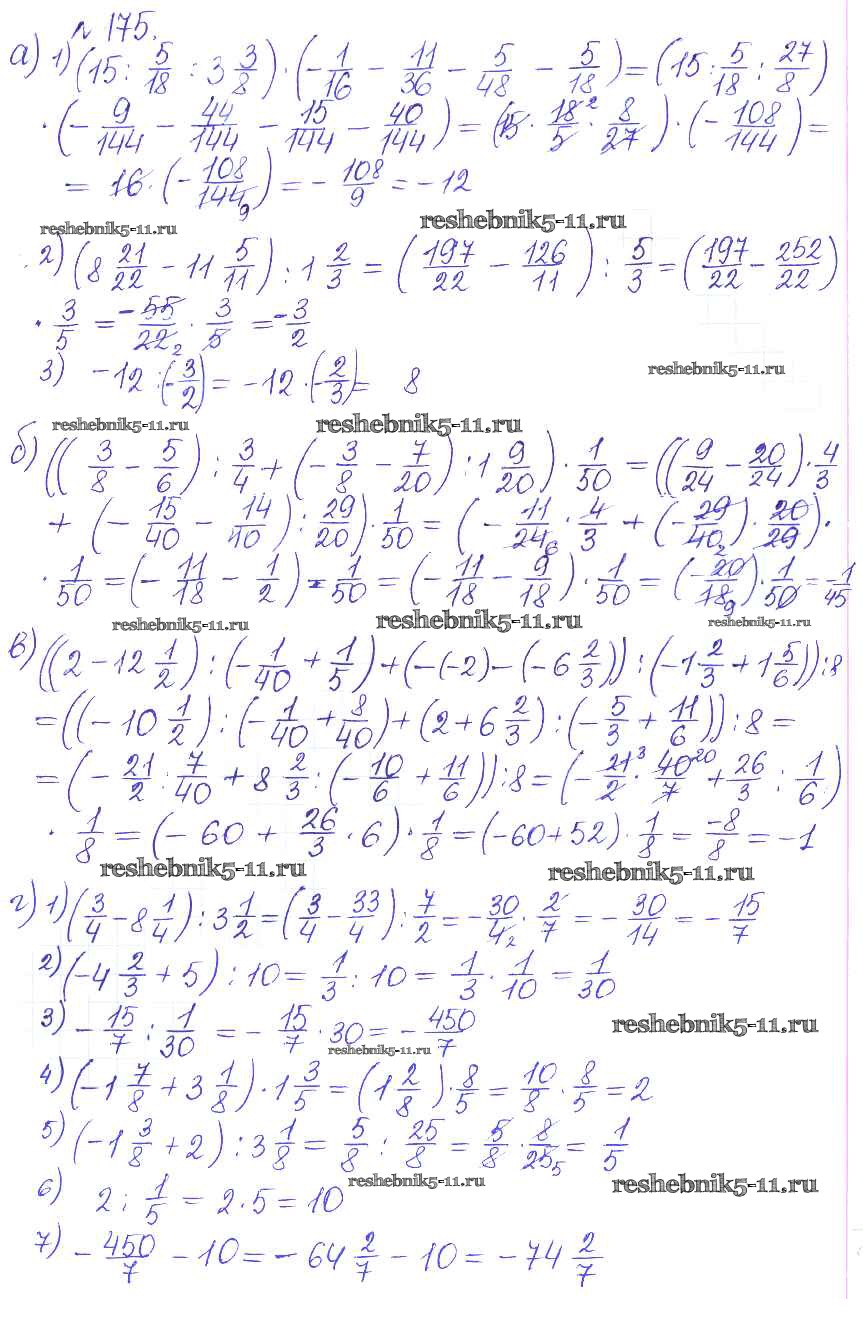 № 175.
а) 1) (15 : 5/18 : 3 3/8) · (-1/16 - 11/36 - 5/48 - 5/18) = (15 : 5/18 : 27/8)
· (-9/144 - 44/144 - 15/144 - 40/144) = (15 · 18²/5 · 8/27) · (-108/144) =
= 16 · (-108/144₉) = -108/9 = -12
reshebnik5-11.ru reshebnik5-11.ru
2) (8 21/22 - 11 5/11) : 1 2/3 = (197/22 - 126/11) : 5/3 = (197/22 - 252/22)
· 3/5 = -55/22₂ · 3/5 = -3/2
3) -12 : (-3/2) = -12 · (-2/3) = 8
reshebnik5-11.ru
reshebnik5-11.ru reshebnik5-11.ru
б) ((3/8 - 5/6) : 3/4 + (-3/8 - 7/20) : 1 9/20) · 1/50 = ((9/24 - 20/24) · 4/3
+ (-15/40 - 14/10) : 29/20) · 1/50 = (-11/24₆ · 4/3 + (-29/40₂) · 20/29) ·
· 1/50 = (-11/18 - 1/2) · 1/50 = (-11/18 - 9/18) · 1/50 = (-20/18₉) · 1/50 = -1/45
reshebnik5-11.ru reshebnik5-11.ru reshebnik5-11.ru
в) ((2 - 12 1/2) : (-1/40 + 1/5) + (-(-2) - (-6 2/3)) : (-1 2/3 + 1 5/6)) : 8
= ((-10 1/2) : (-1/40 + 8/40) + (2 + 6 2/3) : (-5/3 + 11/6)) : 8 =
= (-21/2 : 7/40 + 8 2/3 : (-10/6 + 11/6)) : 8 = (-21³/2 · 40²⁰/7 + 26/3 : 1/6)
· 1/8 = (-60 + 26/3 · 6) · 1/8 = (-60 + 52) · 1/8 = -8/8 = -1
reshebnik5-11.ru reshebnik5-11.ru
г) 1) (3/4 - 8 1/4) : 3 1/2 = (3/4 - 33/4) : 7/2 = -30/4₂ · 2/7 = -30/14 = -15/7
2) (-4 2/3 + 5) : 10 = 1/3 : 10 = 1/3 · 1/10 = 1/30
3) -15/7 : 1/30 = -15/7 · 30 = -450/7
reshebnik5-11.ru reshebnik5-11.ru
4) (-1 7/8 + 3 1/8) · 1 3/5 = (1 2/8) · 8/5 = 10/8 · 8/5 = 2
5) (-1 3/8 + 2) : 3 1/8 = 5/8 : 25/8 = 5/8 · 8/25₅ = 1/5
6) 2 : 1/5 = 2 · 5 = 10
reshebnik5-11.ru reshebnik5-11.ru
7) -450/7 - 10 = -64 2/7 - 10 = -74 2/7